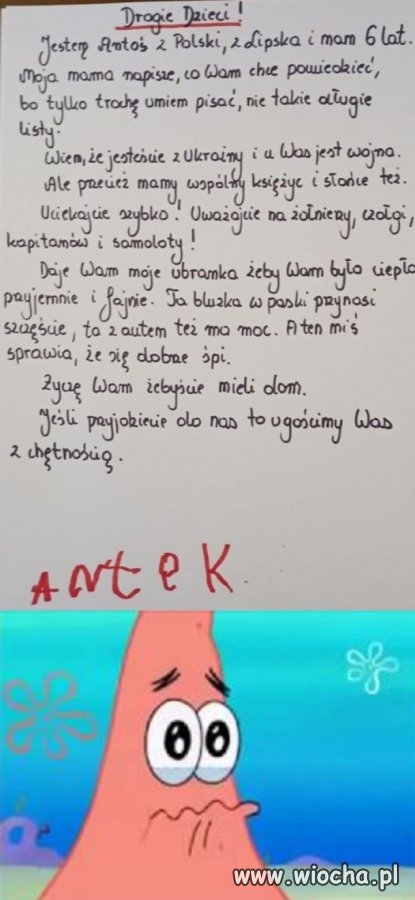 Drogie Dzieci!
Jestem Antoś z Polski, z Lipska i mam 6 lat.
Moja mama napisze, co Wam chcę powiedzieć,
bo tylko trochę umiem pisać, nie takie długie
listy.
Wiem, że jesteście z Ukrainy i u Was jest wojna.
Ale przecież mamy wspólny księżyc i słońce też.
Uciekajcie szybko! Uważajcie na żołnierzy, czołgi,
kapitanów i samoloty!
Daję Wam moje ubranka żeby Wam było ciepło
przyjemnie i fajnie. Ta bluzka w paski przynosi
szczęście, ta z autem też ma moc. A ten miś
sprawia, że się dobrze śpi.
Życzę Wam żebyście mieli dom.
Jeśli przyjdziecie do nas to ugościmy Was
z chętnością.
ANtEK
www.wiocha.pl